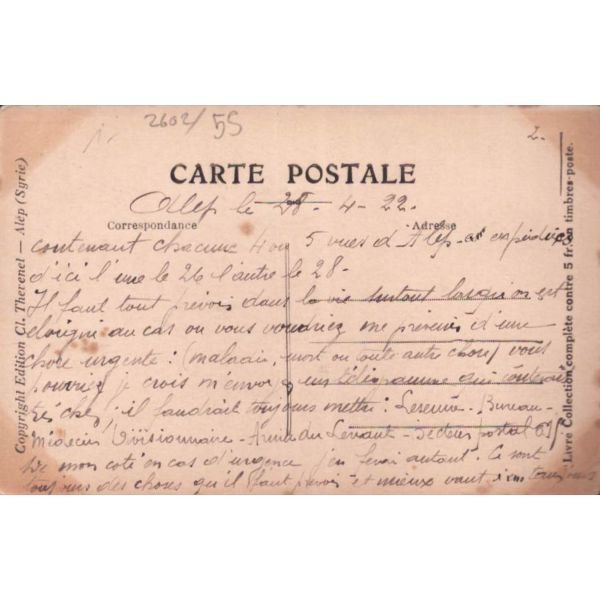 2602/55
2.
CARTE POSTALE
Alep le 28-4-22.
Correspondance
Adresse
contenant chacune 4 ou 5 vues d'Alep et expédiées
d'ici l'une le 26 l'autre le 28-
Il faut tout prévoir dans la vie surtout lorsqu'on est
éloigné au cas ou vous voudriez me prévenir d'une
chose urgente: (maladie, mort ou toute autre chose) vous
pourriez je crois m'envoyer un télégramme qui
très cher, il faudrait toujours mettre: Bureau-
Médecin Divisionnaire - Armée du Levant - Secteur postal 615
De mon coté en cas d'urgence j'en ferai autant. Ce sont
toujours des choses qu'il faut prévoir et mieux vaut
Copyright Edition Cl. Thevenet — Alep (Syrie)
Livre Collection complète contre 5 frs en timbres-poste.